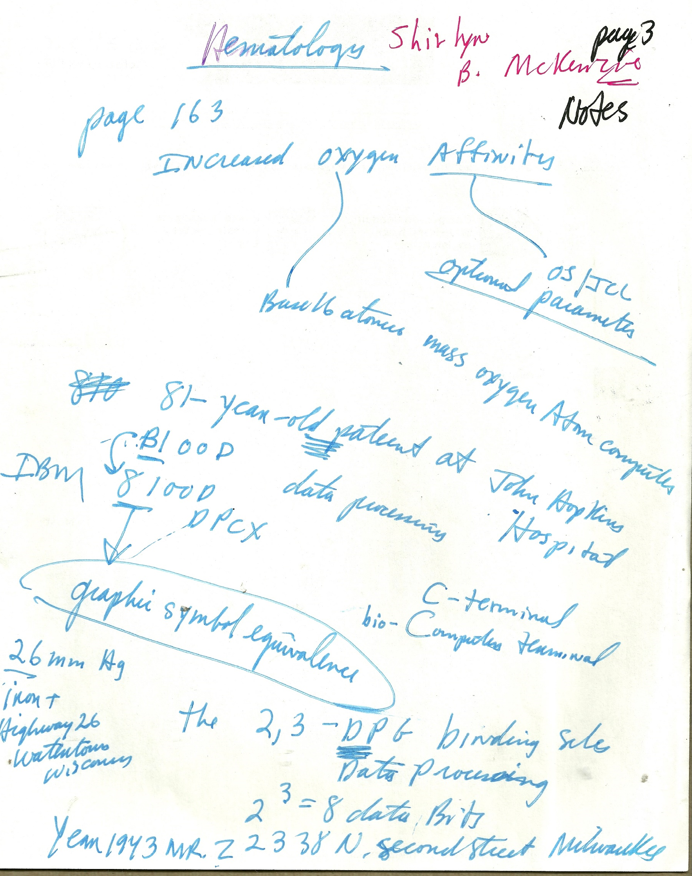 Hematology Shirlyn page 3
B. McKenzie
Notes
page 163
Increased oxygen Affinity
OS/JCL
optional parameter
Base 16 atomic mass oxygen Atom computer
81-year-old patient at John Hopkins Hospital
B100D
IBM 8100D data processing
DPCX
graphic symbol equivalence
C-terminal
bio-Computer terminal
26 mm Hg
iron +
Highway 26
Watertown
Wisconsin
the 2,3-DPG binding site
Data Processing
2³ = 8 data Bits
Year 1943 MR. Z 2338 N. Second Street Milwaukee